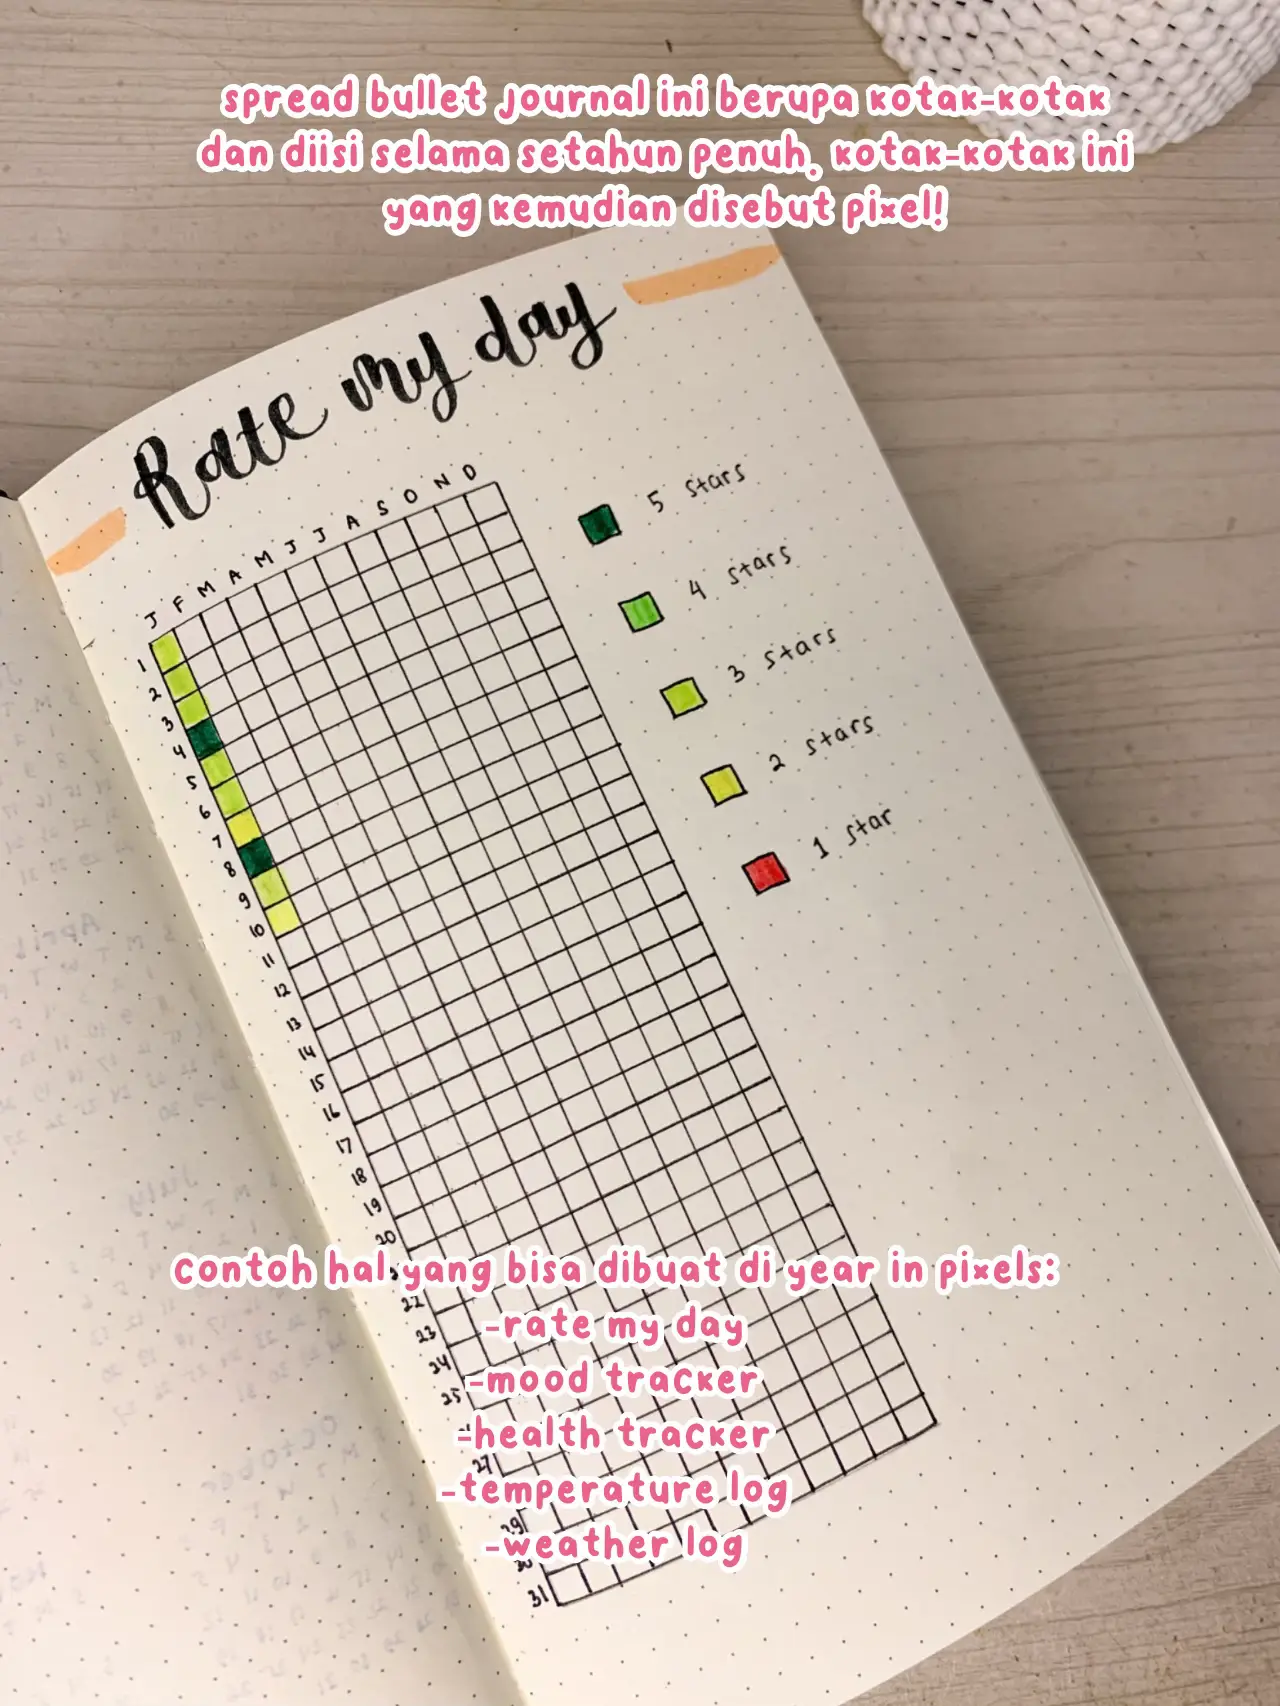 spread bullet journal ini berupa kotak-kotak
dan diisi selama setahun penuh. kotak-kotak ini
yang kemudian disebut pixel!
Rate my day
J F M A M J J A S O N D
5 stars
4 stars
3 stars
2 stars
1 star
1
2
3
4
5
6
7
8
9
10
11
12
13
14
15
16
17
18
19
20
22
23
24
25
27
29
30
31
contoh hal yang bisa dibuat di year in pixels:
-rate my day
-mood tracker
-health tracker
-temperature log
-weather log
April
July
October